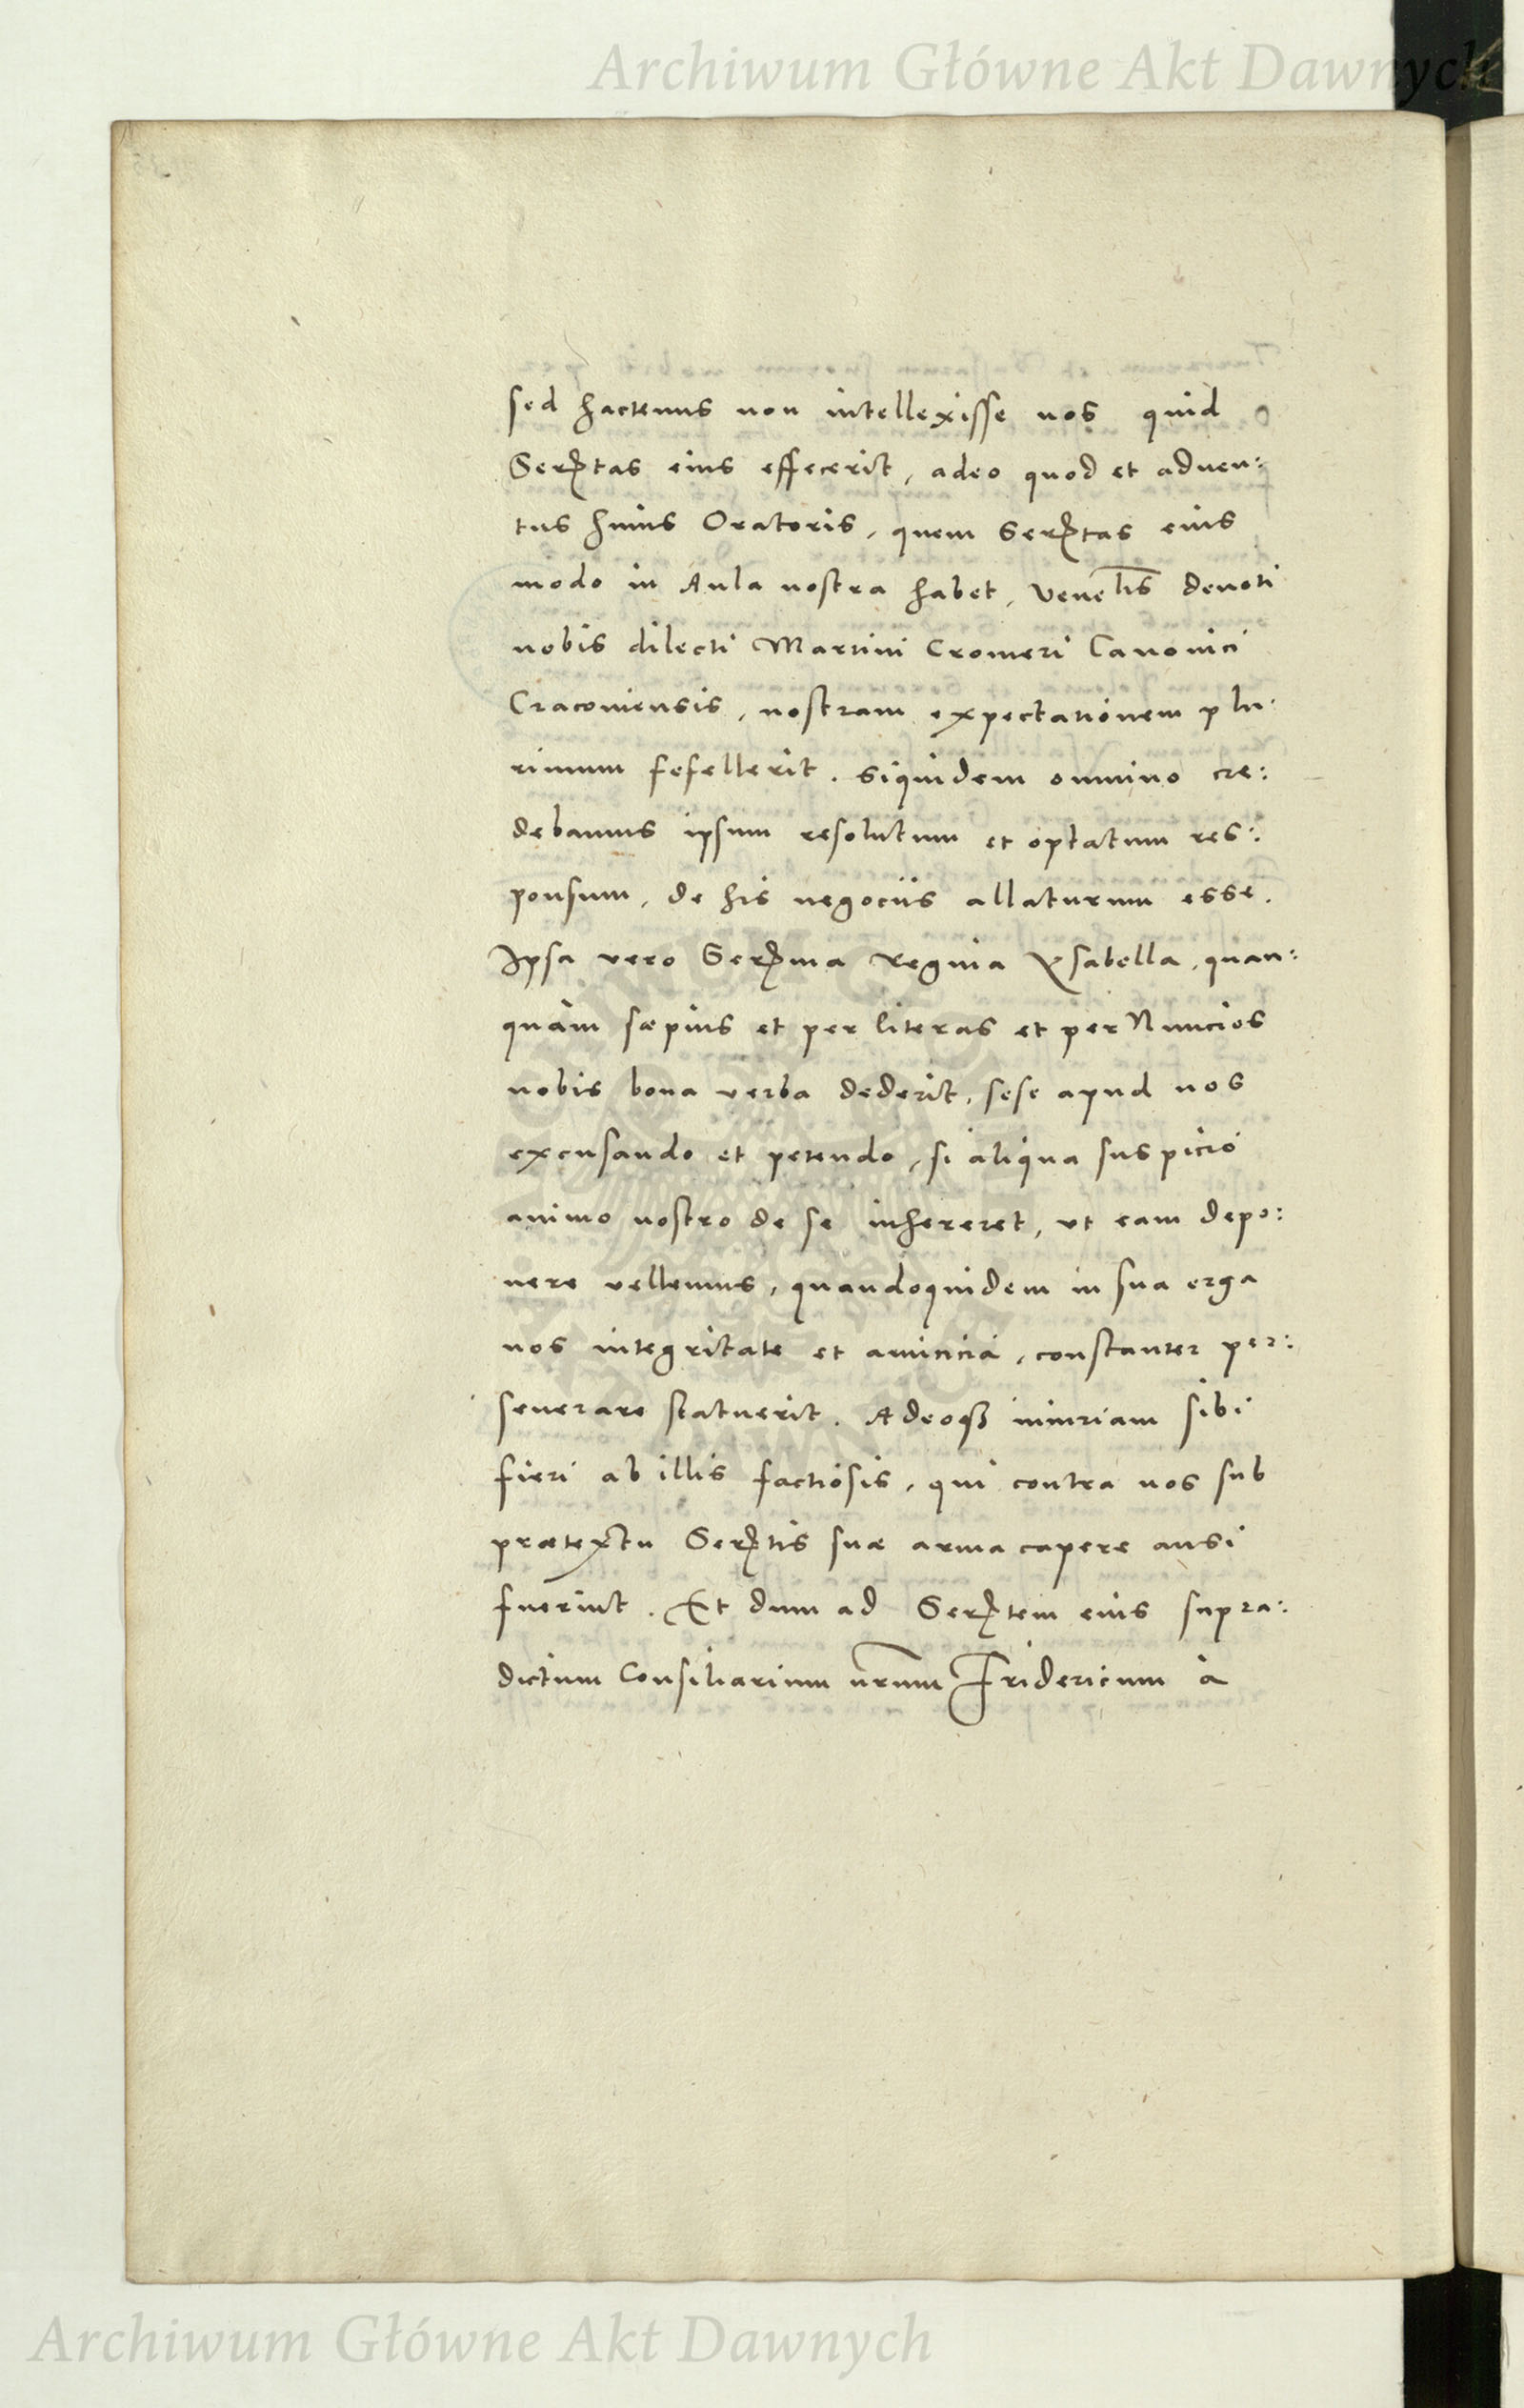 Archiwum Główne Akt Dawnych
sed hactenus non intellexisse nos quid
Serptas eius effecerit, adeo quod et aduen:
tus huius Oratoris, quem Serptas eius
modo in Aula nostra habet, Venelis deuoti
nobis dilecti Martini Cromeri Canonici
Cracouiensis, nostram expectationem plu:
rimum fefellerit. Siquidem omnino cre:
debamus ipsum resolutum et optatum res:
ponsum, de his negociis allaturum esse.
Ipsa vero Serpma Regina Ysabella, quan:
quàm sæpius et per literas et per Nuncios
nobis bona verba dederit, sese apud nos
excusando et petendo, si aliqua suspicio
animo nostro de se inhereret, vt eam depo:
nere vellemus, quandoquidem in sua erga
nos integritate et amicicia, constanter per:
seuerare statuerit. Adeoq3 iniuriam sibi
fieri ab illis factiosis, qui contra nos sub
prætextu Serptis suæ arma capere ausi
fuerint. Et dum ad Serptem eius supra:
dictum Consiliarium nrum Fridericum à
Archiwum Główne Akt Dawnych